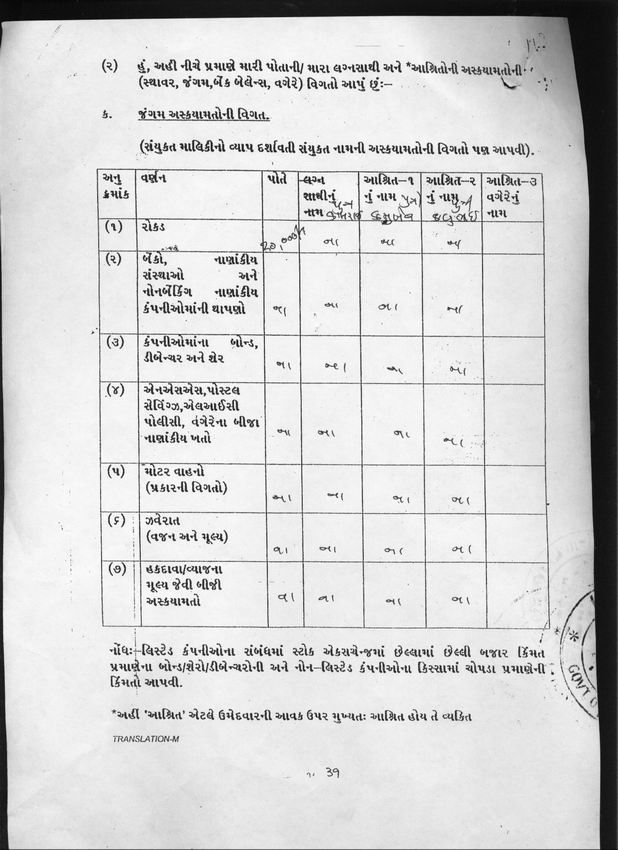 (૨) હું, અહીં નીચે પ્રમાણે મારી પોતાની/ મારા લગ્નસાથી અને *આશ્રિતોની અસ્કયામતોની
(સ્થાવર, જંગમ,બેંક બેલેન્સ, વગેરે) વિગતો આપું છું:–
ક. જંગમ અસ્કયામતોની વિગત.
(સંયુકત માલિકીનો વ્યાપ દર્શાવતી સંયુકત નામની અસ્કયામતોની વિગતો પણ આપવી).
અનુ ક્રમાંક વર્ણન પોતે લગ્ન સાથીનું નામ આશ્રિત–૧ નું નામ આશ્રિત–૨ નું નામ આશ્રિત–૩ વગેરેનું નામ
(૧) રોકડ ના ના ના
(૨) બેંકો, નાણાંકીય
સંસ્થાઓ અને
નોનબેંકિંગ નાણાંકીય
કંપનીઓમાંની થાપણો ના ના ના ના
(૩) કંપનીઓમાંના બોન્ડ,
ડીબેન્ચર અને શેર ના ના ના ના
(૪) એનએસએસ,પોસ્ટલ
સેવિંગ્ઝ,એલઆઈસી
પોલીસી, વગેરેના બીજા
નાણાંકીય ખતો ના ના ના ના
(૫) મોટર વાહનો
(પ્રકારની વિગતો) ના ના ના ના
(૬) ઝવેરાત
(વજન અને મૂલ્ય) ના ના ના ના
(૭) હકદાવા/વ્યાજના
મૂલ્ય જેવી બીજી
અસ્કયામતો ના ના ના ના
નોંધઃ–લિસ્ટેડ કંપનીઓના સંબંધમાં સ્ટોક એકસચેન્જમાં છેલ્લામાં છેલ્લી બજાર કિંમત
પ્રમાણેના બોન્ડ/શેરો/ડીબેન્ચરોની અને નોન–લિસ્ટેડ કંપનીઓના કિસ્સામાં ચોપડા પ્રમાણેની
કિંમતો આપવી.
*અહીં 'આશ્રિત' એટલે ઉમેદવારની આવક ઉપર મુખ્યતઃ આશ્રિત હોય તે વ્યકિત
TRANSLATION-M
39
GOVT